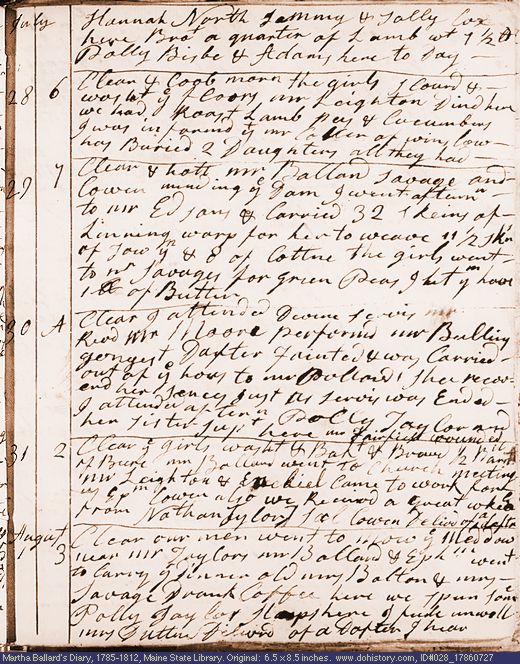 July Hannah North Sammy & Sally Cox
here Bro't a quarter of Lamb wt 7 1/2 lb
Polly Bisbe & Adams here to Day -
28 6 Clear & Cool morn the girls Scourd &
washt ye floors mr Leighton Dind here
we had Roast Lamb Peas & Cucumbers
I was informd yt mr of winslow
has Buried 2 Daughters all they had -
29 7 Clear & hott mr Ballard Savage and
Cowen mending ye Dam I went aftern
to mr Edsons & Carried 32 Skeins of
Linning warp for her to weave 11 1/2 Skn
of Tow yn & 8 of Cottne the girls went
to mr Savages for green Peas I let ym have
1 lb of Butter
30 A Clear I attended Devine Servis
Revd Mr Moore performd mr
yongest Dafter Fainted & was Carried
out of ye hous to mr Pollard Shee recov-
erd her Sences just as Servis was Ended
I attended aftern Polly Taylor and
her Sister here mr Fairfield
31 2 Clear ye girls washt & Bakt & Brewd
mr Ballard went to Church meeting
mr Leighton & Came to work for
us Cowen also we Received a
from Nathan Taylor Cowen Deliv'd of a
August
1 3 Clear our men went to mow ye meddow
near mr Taylors mr Ballard & Epm went
to Carry ye Dinner old mrs Bolton & mrs
Savage Drank Coffee here we Spun Some
Polly Taylor Sleeps here I feele unwell
mrs Dutten Deliverd of a Dafter I hear
Martha Ballard's Diary, 1785-1812, Maine State Library. Original: 6.5 x 8.5 inches. www.dohistory.com, ID#028_17860727